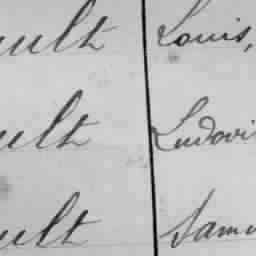 ult Louis,
ult Ludovi
ult Samu